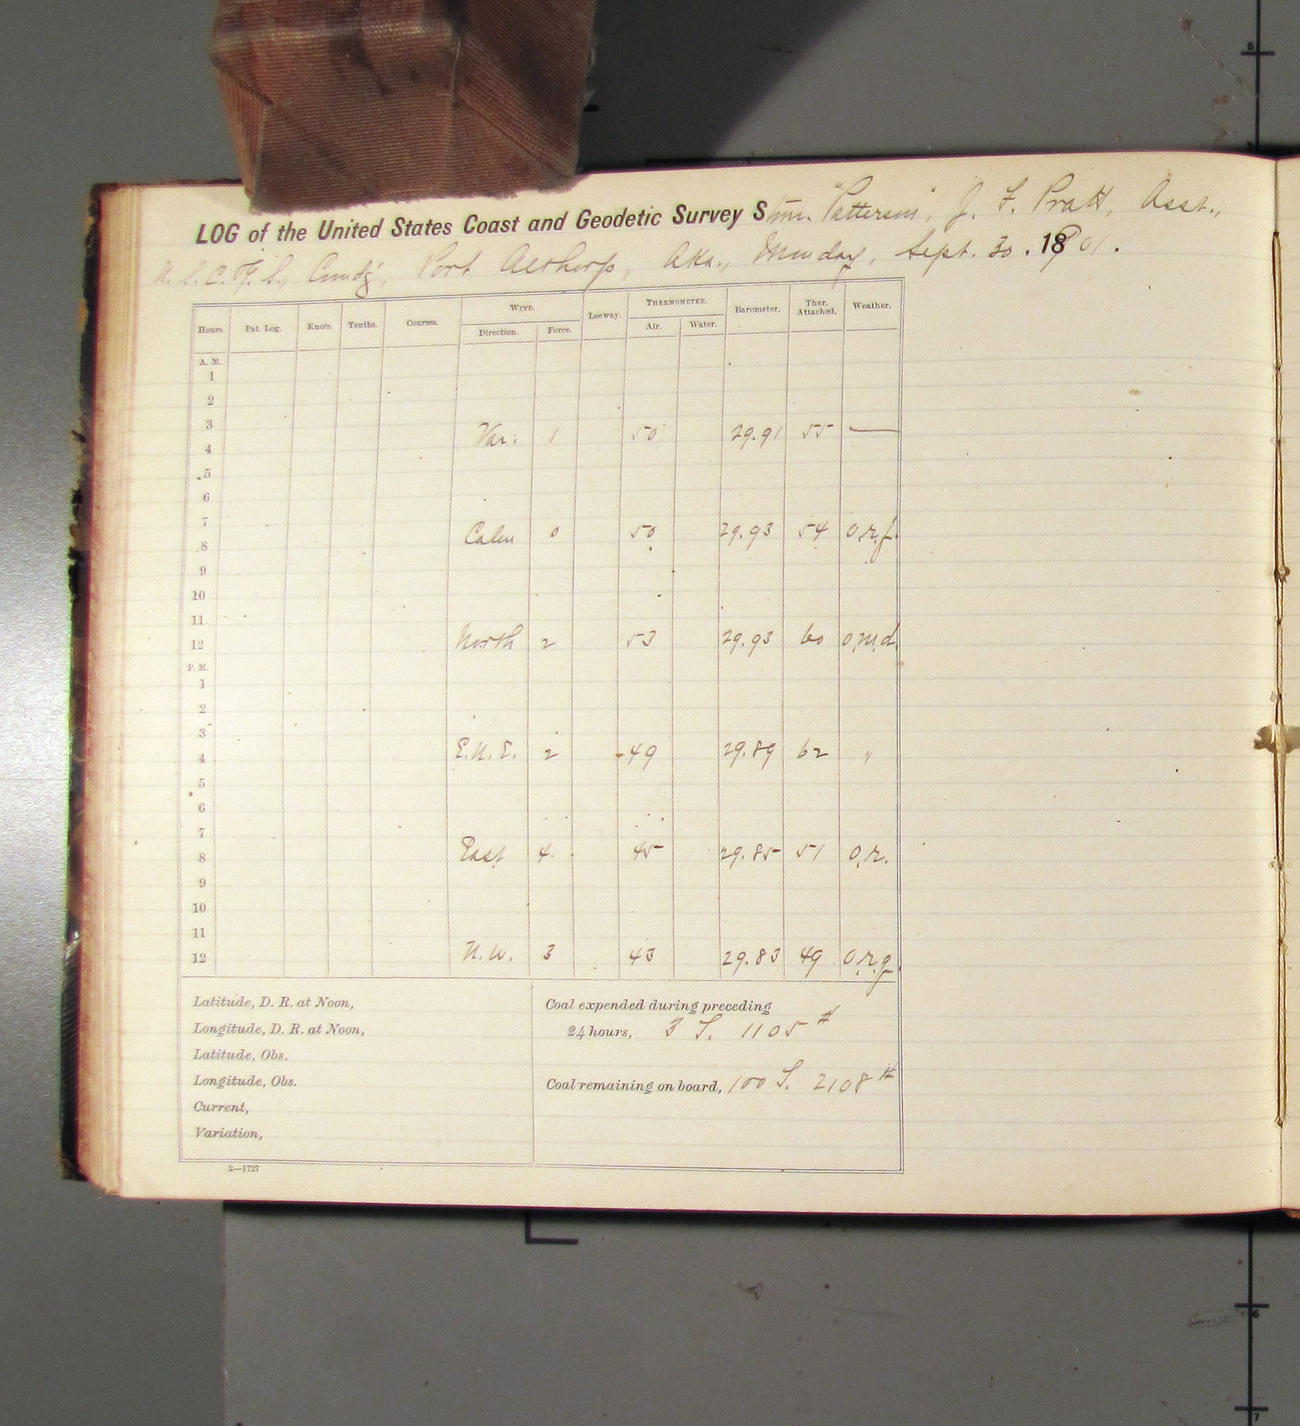 LOG of the United States Coast and Geodetic Survey Stmr. "Patterson", J. F. Pratt, Asst.,
U. S. C. & G. S., Comdg, Port Althorp, Aka., Monday, Sept. 30. 1901.
Hours. Pat. Log. Knots. Tenths. Courses. WIND. Leeway. THERMOMETER. Barometer. Ther. Attached. Weather.
Direction. Force. Air. Water.
A. M.
1
2
3
4 Var. 1 50 29.91 55 —
5
6
7
8 Calm 0 50 29.93 54 O.r.f.
9
10
11
12 North 2 53 29.93 60 O.m.d.
P. M.
1
2
3
4 E.N.E. 2 49 29.89 62 "
5
6
7
8 East 4. 45 29.85 51 O.r.
9
10
11
12 N.W. 3 43 29.83 49 O.r.q.
Latitude, D. R. at Noon,
Longitude, D. R. at Noon,
Latitude, Obs.
Longitude, Obs.
Current,
Variation,
Coal expended during preceding
24 hours, 3 T. 1105 #
Coal remaining on board, 100 T. 2108 #
2—1727
6
6
7